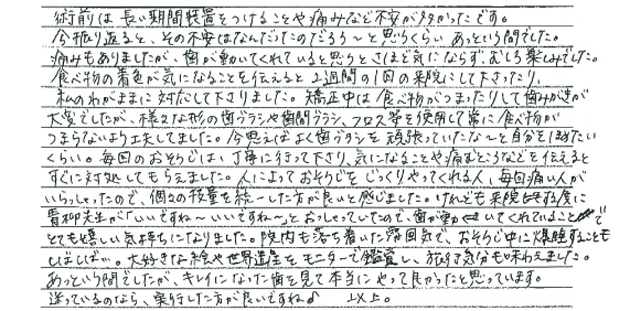 術前は長い期間装置をつけることや痛みなど不安が多かったです。
今振り返ると、その不安はなんだったのだろう〜と思うくらいあっという間でした。
痛みもありましたが、歯が動いてくれていると思うとさほど気にならず、むしろ楽しみでした。
食べ物の着色が気になることを伝えると2週間の1回の来院にして下さったり、
私のわがままに対応して下さりました。矯正中は食べ物がつまったりして歯みがきが
大変でしたが、様々な形の歯ブラシや歯間ブラシ、フロス等を使用して常に食べ物が
つまらないよう工夫してました。今思えばよく歯ブラシを頑張っていたな〜と自分をほめたい
くらい。毎回のおそうじは、丁寧に行って下さり、気になることや痛むところなどを伝えると
すぐに対処してもらえました。人によっておそうじをじっくりやってくれる人、毎回痛い人が
いらっしゃったので、個々の技量を統一した方が良いと感じました。けれども来院する度に
青柳先生が「いいですね〜いいですね〜」とおっしゃっていたので、歯が動いてくれていることが
とても嬉しい気持ちになりました。院内も落ち着いた雰囲気で、おそうじ中に爆睡することも
しばしば…。大好きな絵や世界遺産をモニターで鑑賞し、旅行気分も味わえました。
あっという間でしたが、キレイになった歯を見て本当にやって良かったと思っています。
迷っているのなら、実行した方が良いですね♪ 以上。